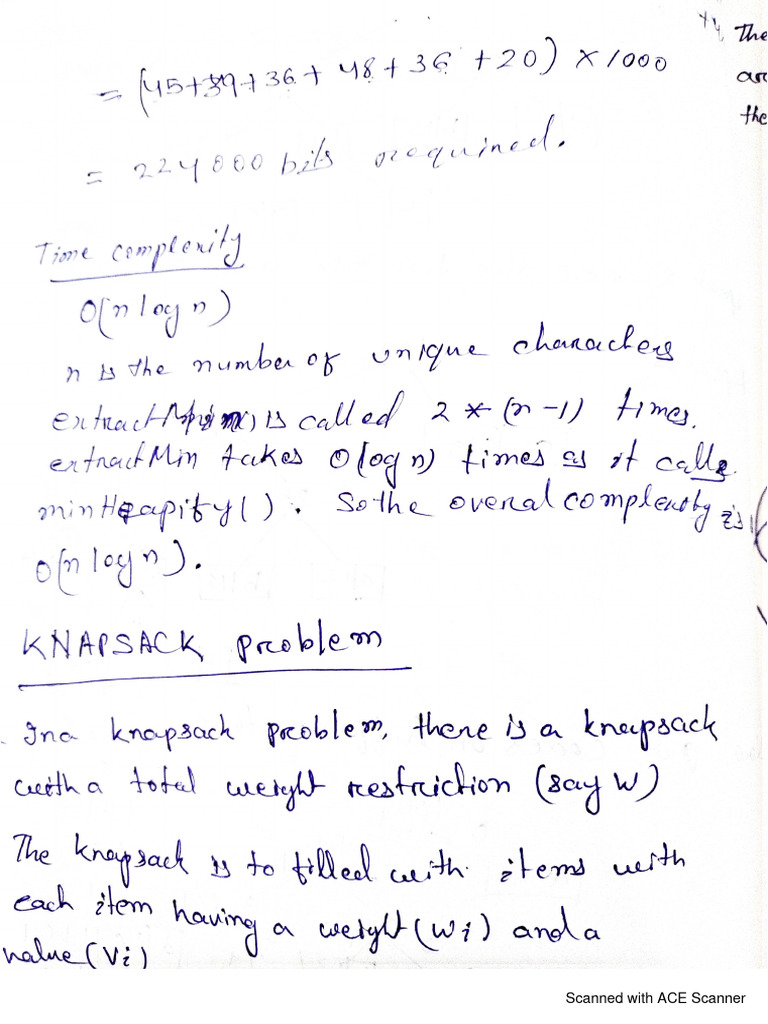 = (45+39+36+48+36+20) × 1000
= 224000 bits required.
Time complexity
O(n log n)
n is the number of unique characters
extractMin() is called 2 * (n-1) times.
extractMin takes O(log n) times as it calls
minHeapify(). So the overal complexity is
O(n log n).
KNAPSACK problem
In a knapsack problem, there is a knapsack
with a total weight restriction (say W)
The knapsack is to filled with items with
each item having a weight (Wi) and a
value (Vi)
The
are
the
Scanned with ACE Scanner